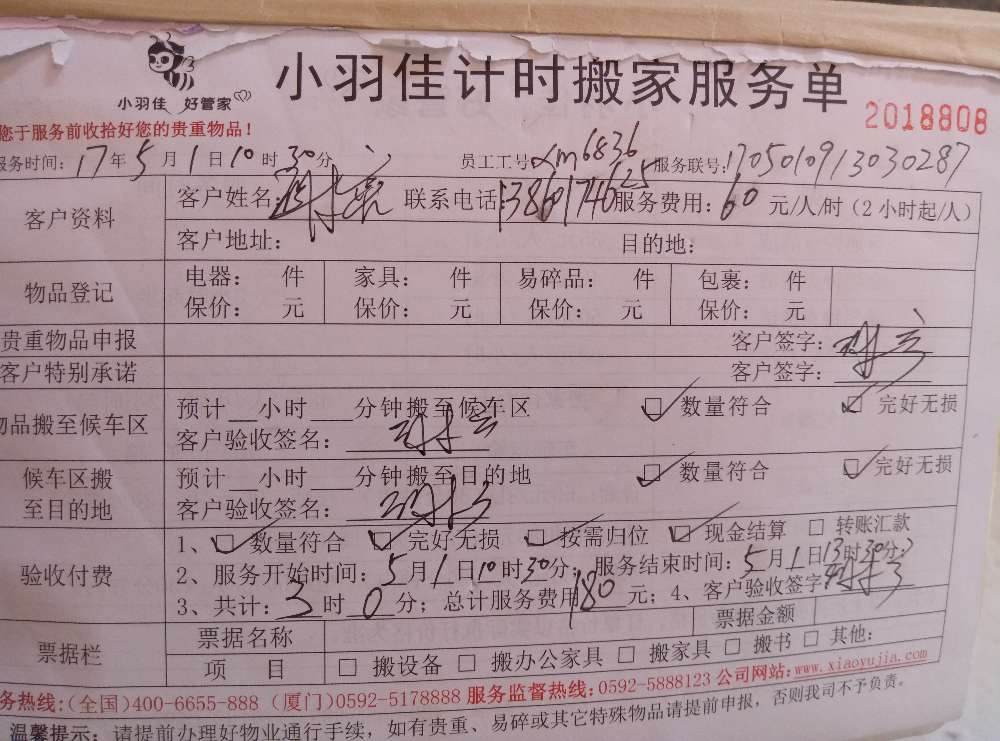 小羽佳 好管家
小羽佳计时搬家服务单
2018808
您于服务前收拾好您的贵重物品！
服务时间：17年5月1日10时30分 员工工号：xm6836 服务联号：1705010913030287
客户资料 客户姓名： 联系电话：13860174625 服务费用：60元/人/时（2小时起/人）
客户地址： 目的地：
物品登记 电器： 件 家具： 件 易碎品： 件 包裹： 件
保价： 元 保价： 元 保价： 元 保价： 元
贵重物品申报 客户签字：
客户特别承诺 客户签字：
物品搬至候车区 预计__小时___分钟搬至候车区 ☑ 数量符合 ☑ 完好无损
客户验收签名：
候车区搬至目的地 预计__小时___分钟搬至目的地 ☑ 数量符合 ☑ 完好无损
客户验收签名：
验收付费 1、☑ 数量符合 ☑ 完好无损 ☑ 按需归位 ☑ 现金结算 □ 转账汇款
2、服务开始时间：5月1日10时30分；服务结束时间：5月1日13时30分；
3、共计：3时0分；总计服务费用180元；4、客户验收签字
票据栏 票据名称 票据金额
项 目 □ 搬设备 □ 搬办公家具 □ 搬家具 □ 搬书 □ 其他：
务热线：(全国)400-6655-888 (厦门)0592-5178888 服务监督热线：0592-5888123 公司网站：www.xiaoyujia.com
温馨提示：请提前办理好物业通行手续，如有贵重、易碎或其它特殊物品请提前申报，否则我司不予负责。